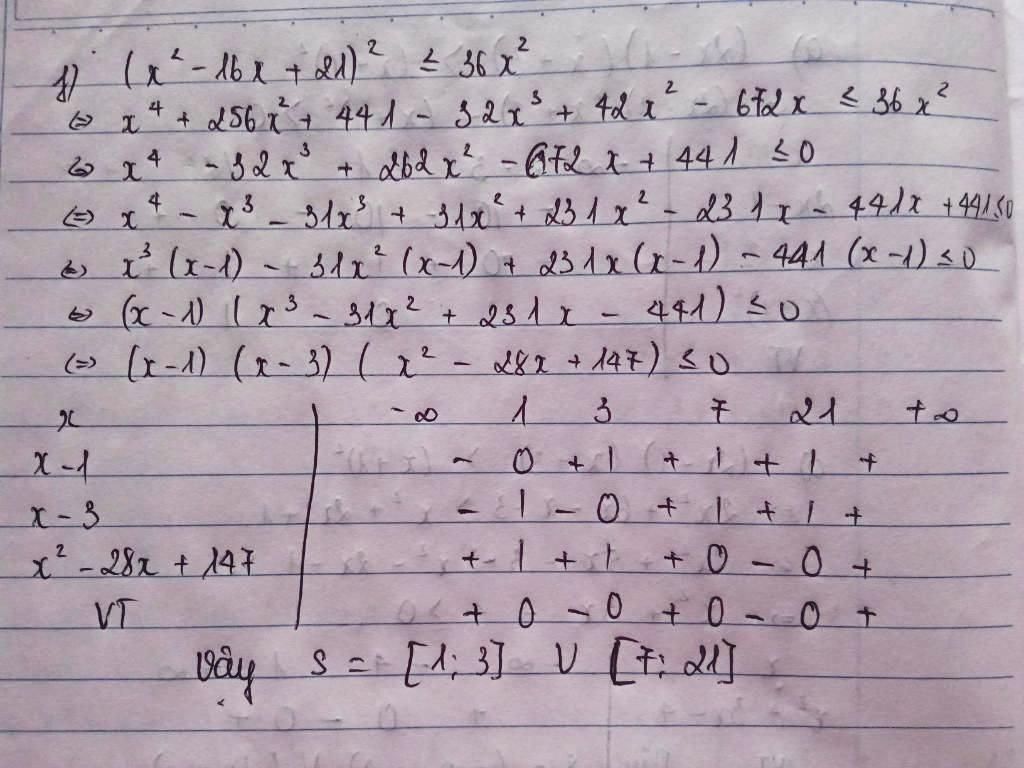 f) (x² - 16x + 21)² ≤ 36x²
⇔ x⁴ + 256x² + 441 - 32x³ + 42x² - 672x ≤ 36x²
⇔ x⁴ - 32x³ + 262x² - 672x + 441 ≤ 0
⇔ x⁴ - x³ - 31x³ + 31x² + 231x² - 231x - 441x + 441 ≤ 0
⇔ x³(x-1) - 31x²(x-1) + 231x(x-1) - 441(x-1) ≤ 0
⇔ (x-1)(x³ - 31x² + 231x - 441) ≤ 0
⇔ (x-1)(x-3)(x² - 28x + 147) ≤ 0
x | -∞ 1 3 7 21 +∞
x-1 | - 0 + | + | + | +
x-3 | - | - 0 + | + | +
x² - 28x + 147 | + | + | + 0 - 0 +
VT | + 0 - 0 + 0 - 0 +
Vậy S = [1; 3] ∪ [7; 21]